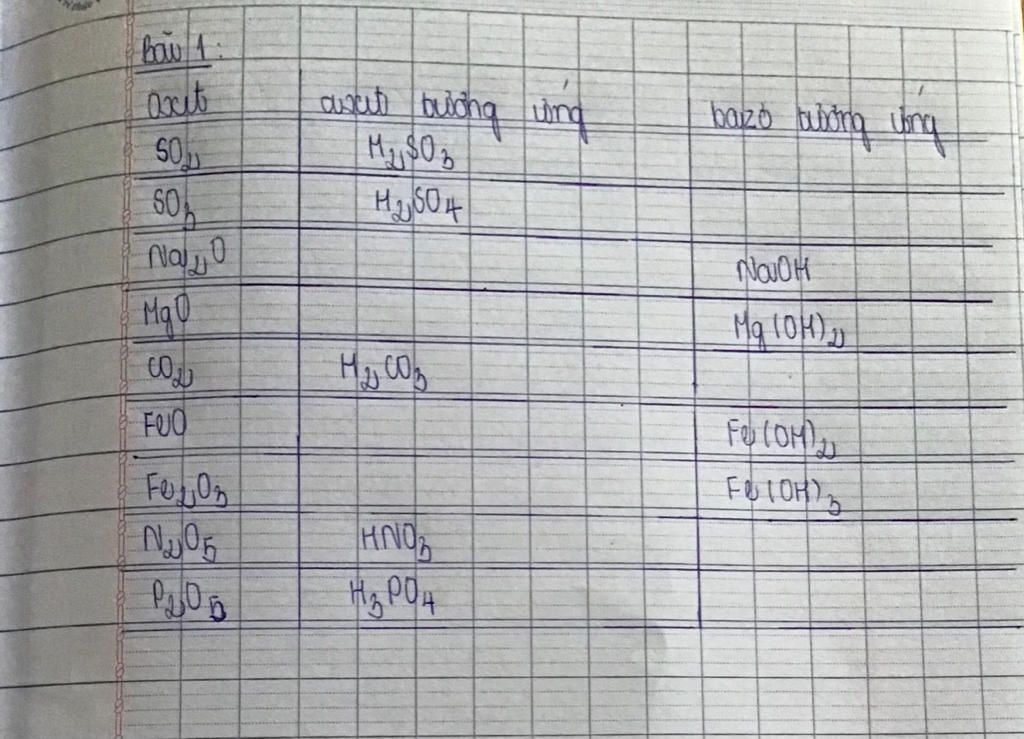 Bài 1:
oxit axit tương ứng bazơ tương ứng
SO₂ H₂SO₃
SO₃ H₂SO₄
Na₂O NaOH
MgO Mg(OH)₂
CO₂ H₂CO₃
FeO Fe(OH)₂
Fe₂O₃ Fe(OH)₃
N₂O₅ HNO₃
P₂O₅ H₃PO₄